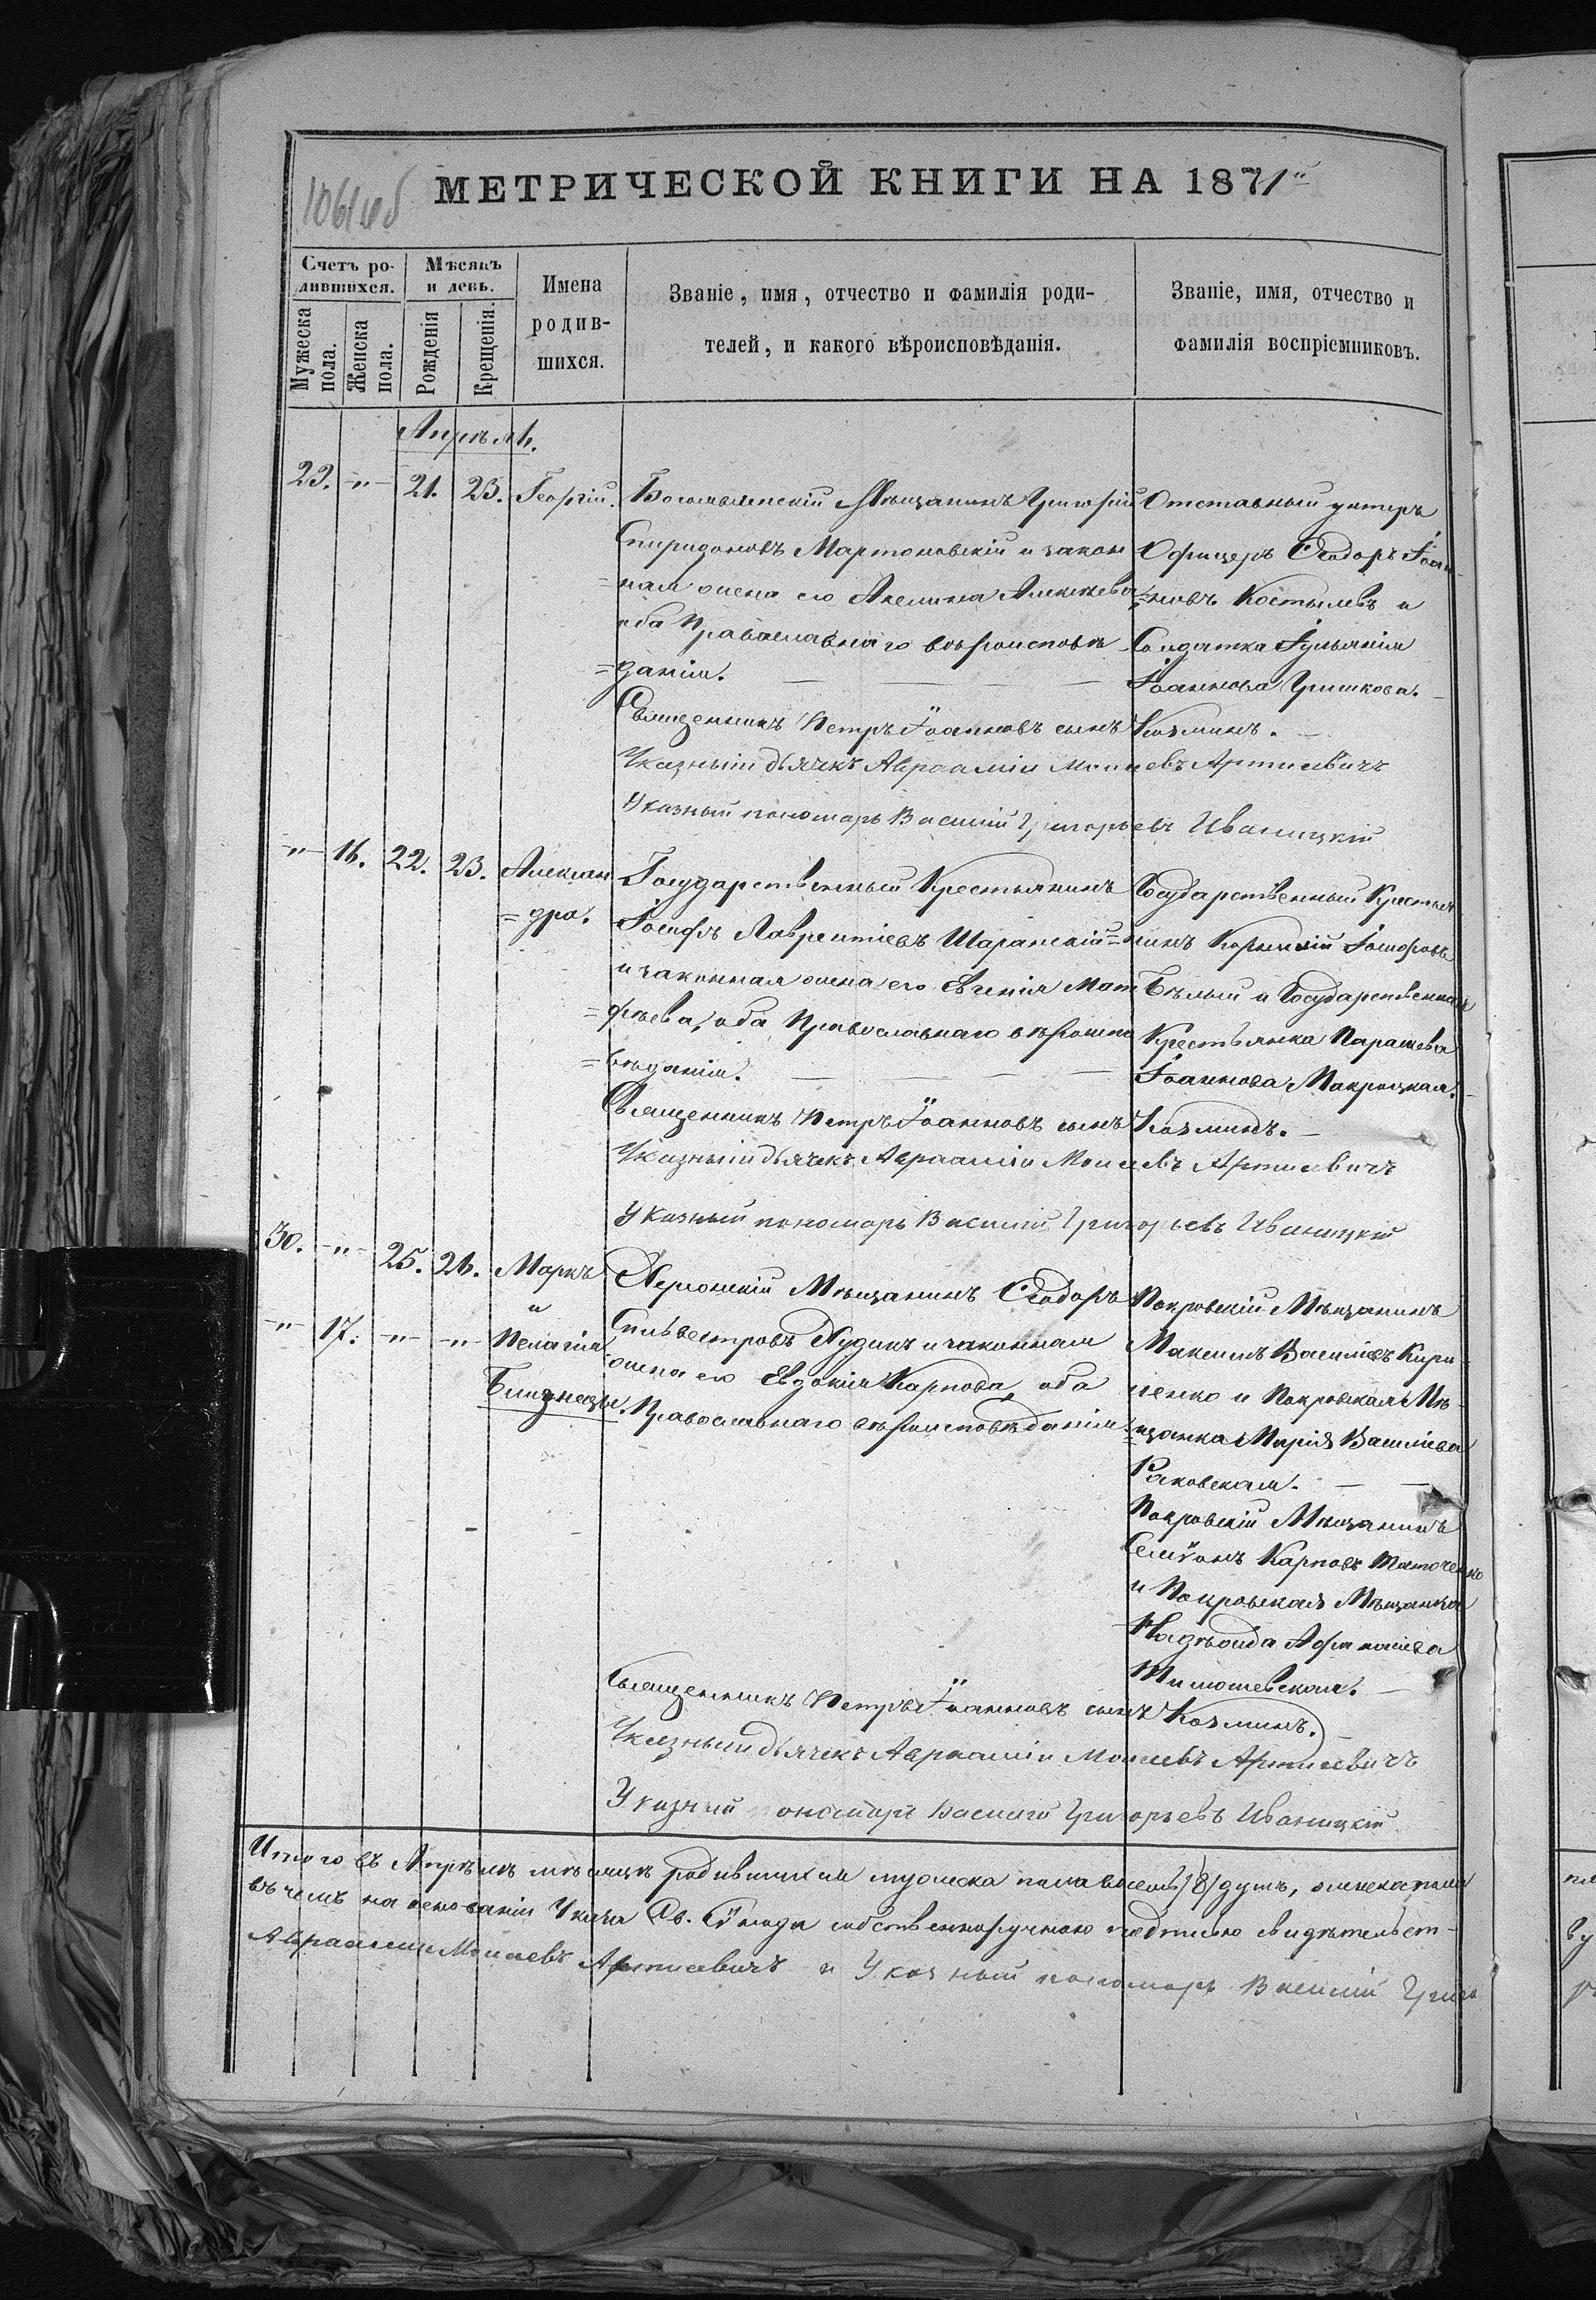 1061 об
МЕТРИЧЕСКОЙ КНИГИ НА 1871й
Счетъ ро-
дившихся.
Мѣсяцъ
и день.
Мужеска
пола.
Женска
пола.
Рожденія
Крещенія.
Имена
родив-
шихся.
Званіе, имя, отчество и фамилія роди-
телей, и какого вѣроисповѣданія.
Званіе, имя, отчество и
фамилія воспріемниковъ.
Апрѣль.
29. -"- 21. 23. Георгій.
Мѣщанинъ Григорій
Спиридоновъ Мартоновскій и закон
=ная жена его Акелина Алексѣева
оба Православнаго вѣроисповѣ-
=данія.
Отставный унтеръ
Офицеръ Ѳеодоръ Іоан
=новъ Костылевъ и
Солдатка Іульянія
Іоаннова Гришкова.
Священникъ Петръ Іоанновъ сынъ Козминъ.
Указный дьячекъ Авраамій Моисеевъ Артисевичъ
Указный пономарь Василій Григорьевъ Иваницкій
-"- 16. 22. 23. Алексан
=дра.
Государственный Крестьянинъ
Іосифъ Лаврентіевъ Шаранскій
и законная жена его Евгенія Мат
=фѣева, оба Православнаго вѣроиспо
=вѣданія.
Государственный Крестья
=нинъ Корнилій Іосифовъ
Бѣлый и Государственная
Крестьянка Параскева
Іоаннова Мокрицкая.
Священникъ Петръ Іоанновъ сынъ Козминъ.
Указный дьячекъ Авраамій Моисеевъ Артисевичъ
Указный пономарь Василій Григорьевъ Иваницкій
30. -"- 25. 26. Маркъ
и
-"- 17. -"- -"- Пелагія
Близнецы.
Херсонскій Мѣщанинъ Ѳеодоръ
Сильвестровъ Худикъ и законная
жена его Евдокія Карпова, оба
Православнаго вѣроисповѣданія.
Покровскій Мѣщанинъ
Максимъ Василіевъ Кири
ченко и Покровская Мѣ-
=щанка Марія Василіева
Раковская.
Покровскій Мѣщанинъ
Семіонъ Карповъ
и Покровская Мѣщанка
Надѣжда Афанасіева
Тимошевская.
Священникъ Петръ Іоанновъ сынъ Козминъ.
Указный дьячекъ Авраамій Моисеевъ Артисевичъ
Указный пономарь Василій Григорьевъ Иваницкій
Итого въ Апрѣлѣ мѣсяцѣ родившихся мужеска пола восемь /8/ душъ, женска пола
въ чемъ на основаніи Указа Св. Сѵнода собственноручною подписью свидѣтельст-
Авраамій Моисеевъ Артисевичъ и Указный пономарь Василій Григо